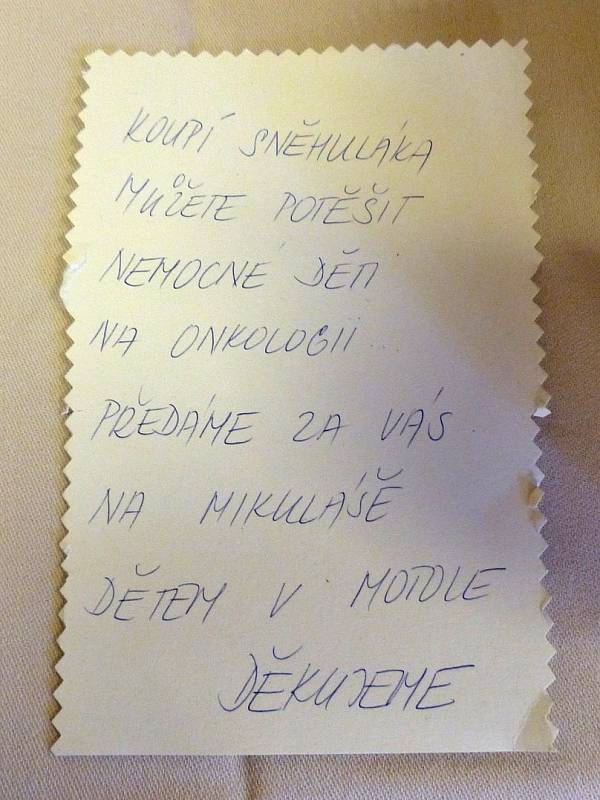 KOUPÍ SNĚHULÁKA
MŮŽETE POTĚŠIT
NEMOCNÉ DĚTI
NA ONKOLOGII
PŘEDÁME ZA VÁS
NA MIKULÁŠE
DĚTEM V MOTOLE
DĚKUJEME